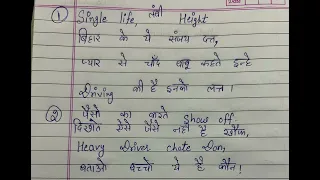 Date
① Single life, लंबी Height
बिहार के ये संजय दत्त,
प्यार से चाँद बाबू कहते इन्हे
Driving की है इनको लत्त।
② पैसों का करते show off
दिखाते ऐसे जैसे नहीं है खौफ,
Heavy Driver chote Don,
बताओ बच्चों ये है कौन!